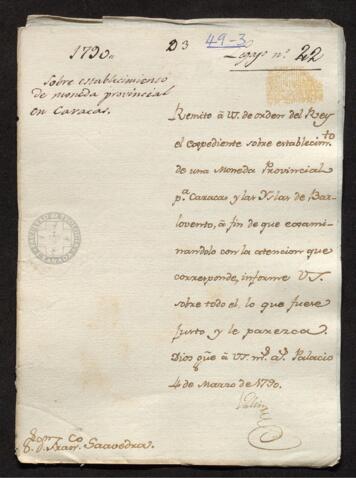 1790.
D3
49-3
Legajo nº. 22
Sobre establecimiento
de moneda provincial
en Caracas.
Remito à V. de orden del Rey
el expediente sobre establecim.to
de una Moneda Provincial
p.a Caracas y las Yslas de Bar-
lovento, à fin de que exami-
nandolo con la atencion que
corresponde, informe V.S.
sobre todo él, lo que fuere
justo y le parezca.
Dios gũe à V.S. m.s a.s Palacio
4 de Marzo de 1790.
S.or D.n Fran.co Saavedra.